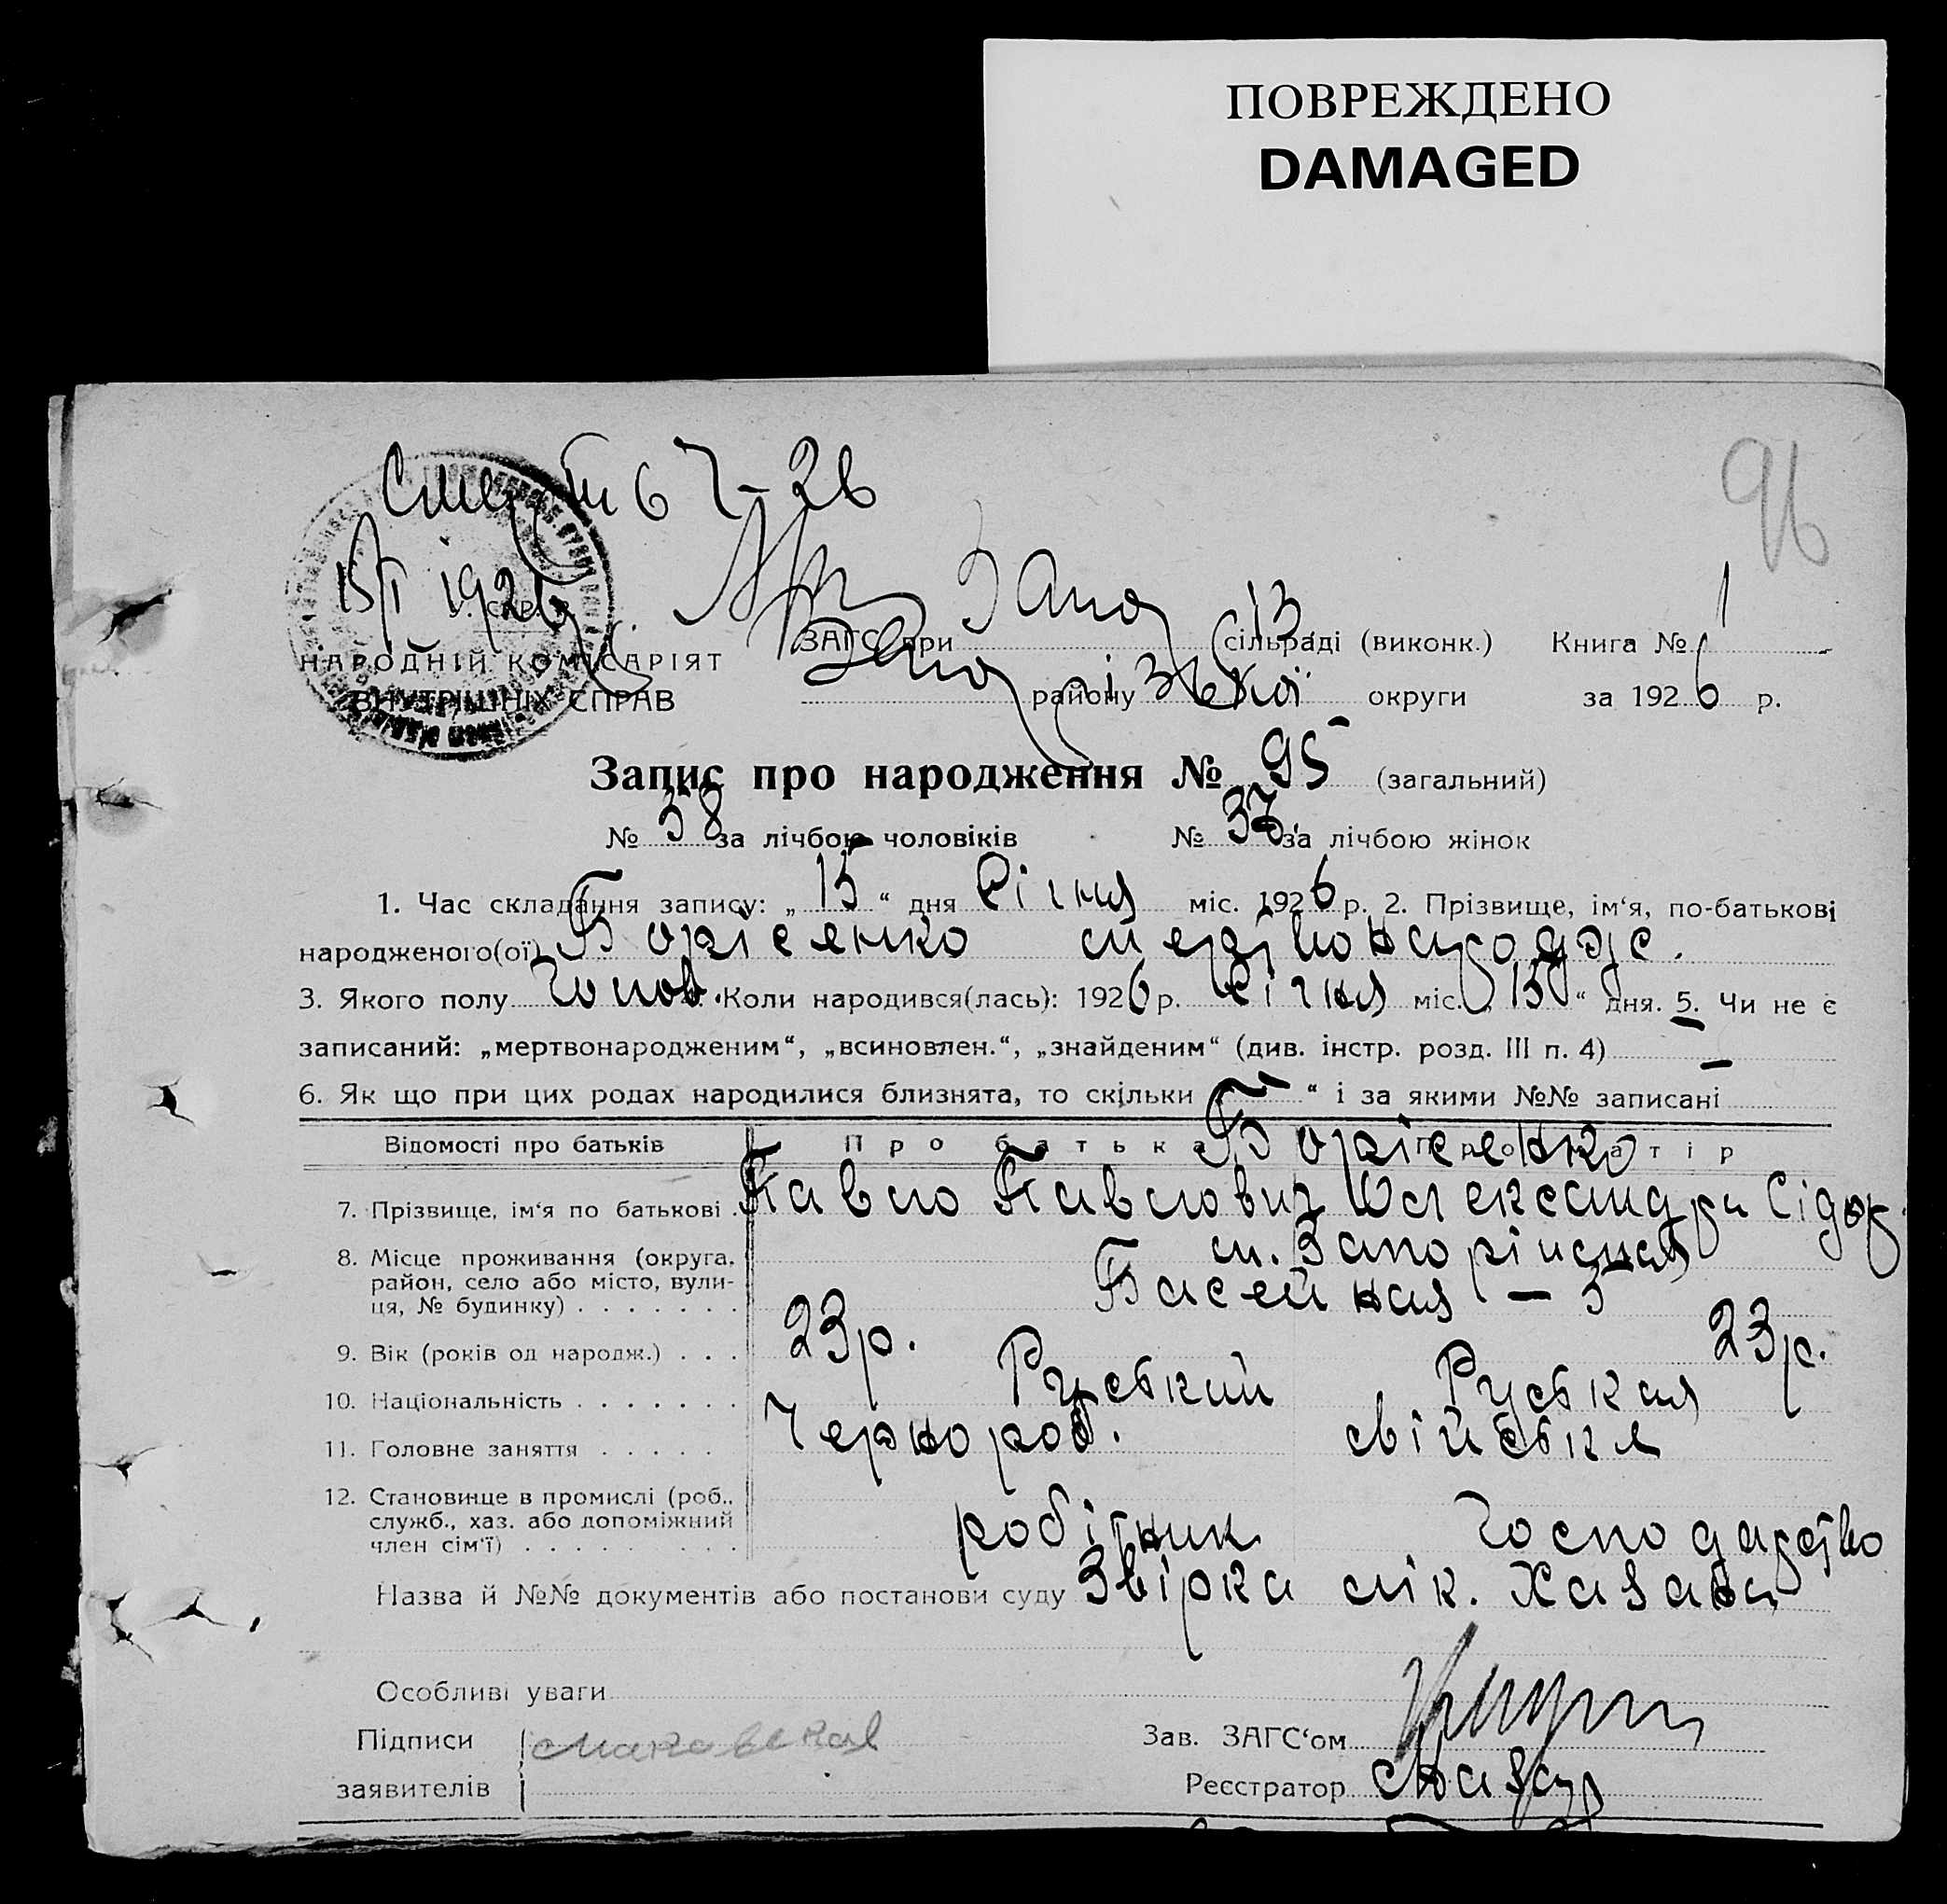 ПОВРЕЖДЕНО
DAMAGED
96
Смерт 67-26
15/I 1926
НАРОДНІЙ КОМІСАРІЯТ
ВНУТРІШНІХ СПРАВ
ЗАГС при Запор сільраді (виконк.) Книга № 1
Запоріз району З-ької округи за 1926 р.
Запис про народження № 95 (загальний)
№ 58 за лічбою чоловіків № 37 за лічбою жінок
1. Час складання запису: „15“ дня Січня міс. 1926 р. 2. Прізвище, ім‘я, по-батькові
народженого(ої) Борісенко мертвонародже.
3. Якого полу чолов. Коли народився(лась): 1926 р. Січня міс. „15“ дня. 5. Чи не є
записаний: „мертвонародженим“, „всиновлен.“, „знайденим“ (див. інстр. розд. III п. 4) —
6. Як що при цих родах народилися близнята, то скільки “ і за якими №№ записані
Відомості про батьків Про батька Борісенко Про матір
7. Прізвище, ім‘я по батькові Павло Павлович Олександра Сідор.
8. Місце проживання (округа, район, село або місто, вули-ця, № будинку) м. Запоріжжя
Басейная — 5
9. Вік (років од народж.) 23 р. 23 р.
10. Національність Руський Руська
11. Головне заняття Чернороб. свійське
12. Становище в промислі (роб., служб., хаз. або допоміжний член сім‘ї) робітник господарство
Назва й №№ документів або постанови суду Звірка лік. Хазана
Особливі уваги
Підписи заявителів
Зав. ЗАГС‘ом
Реєстратор